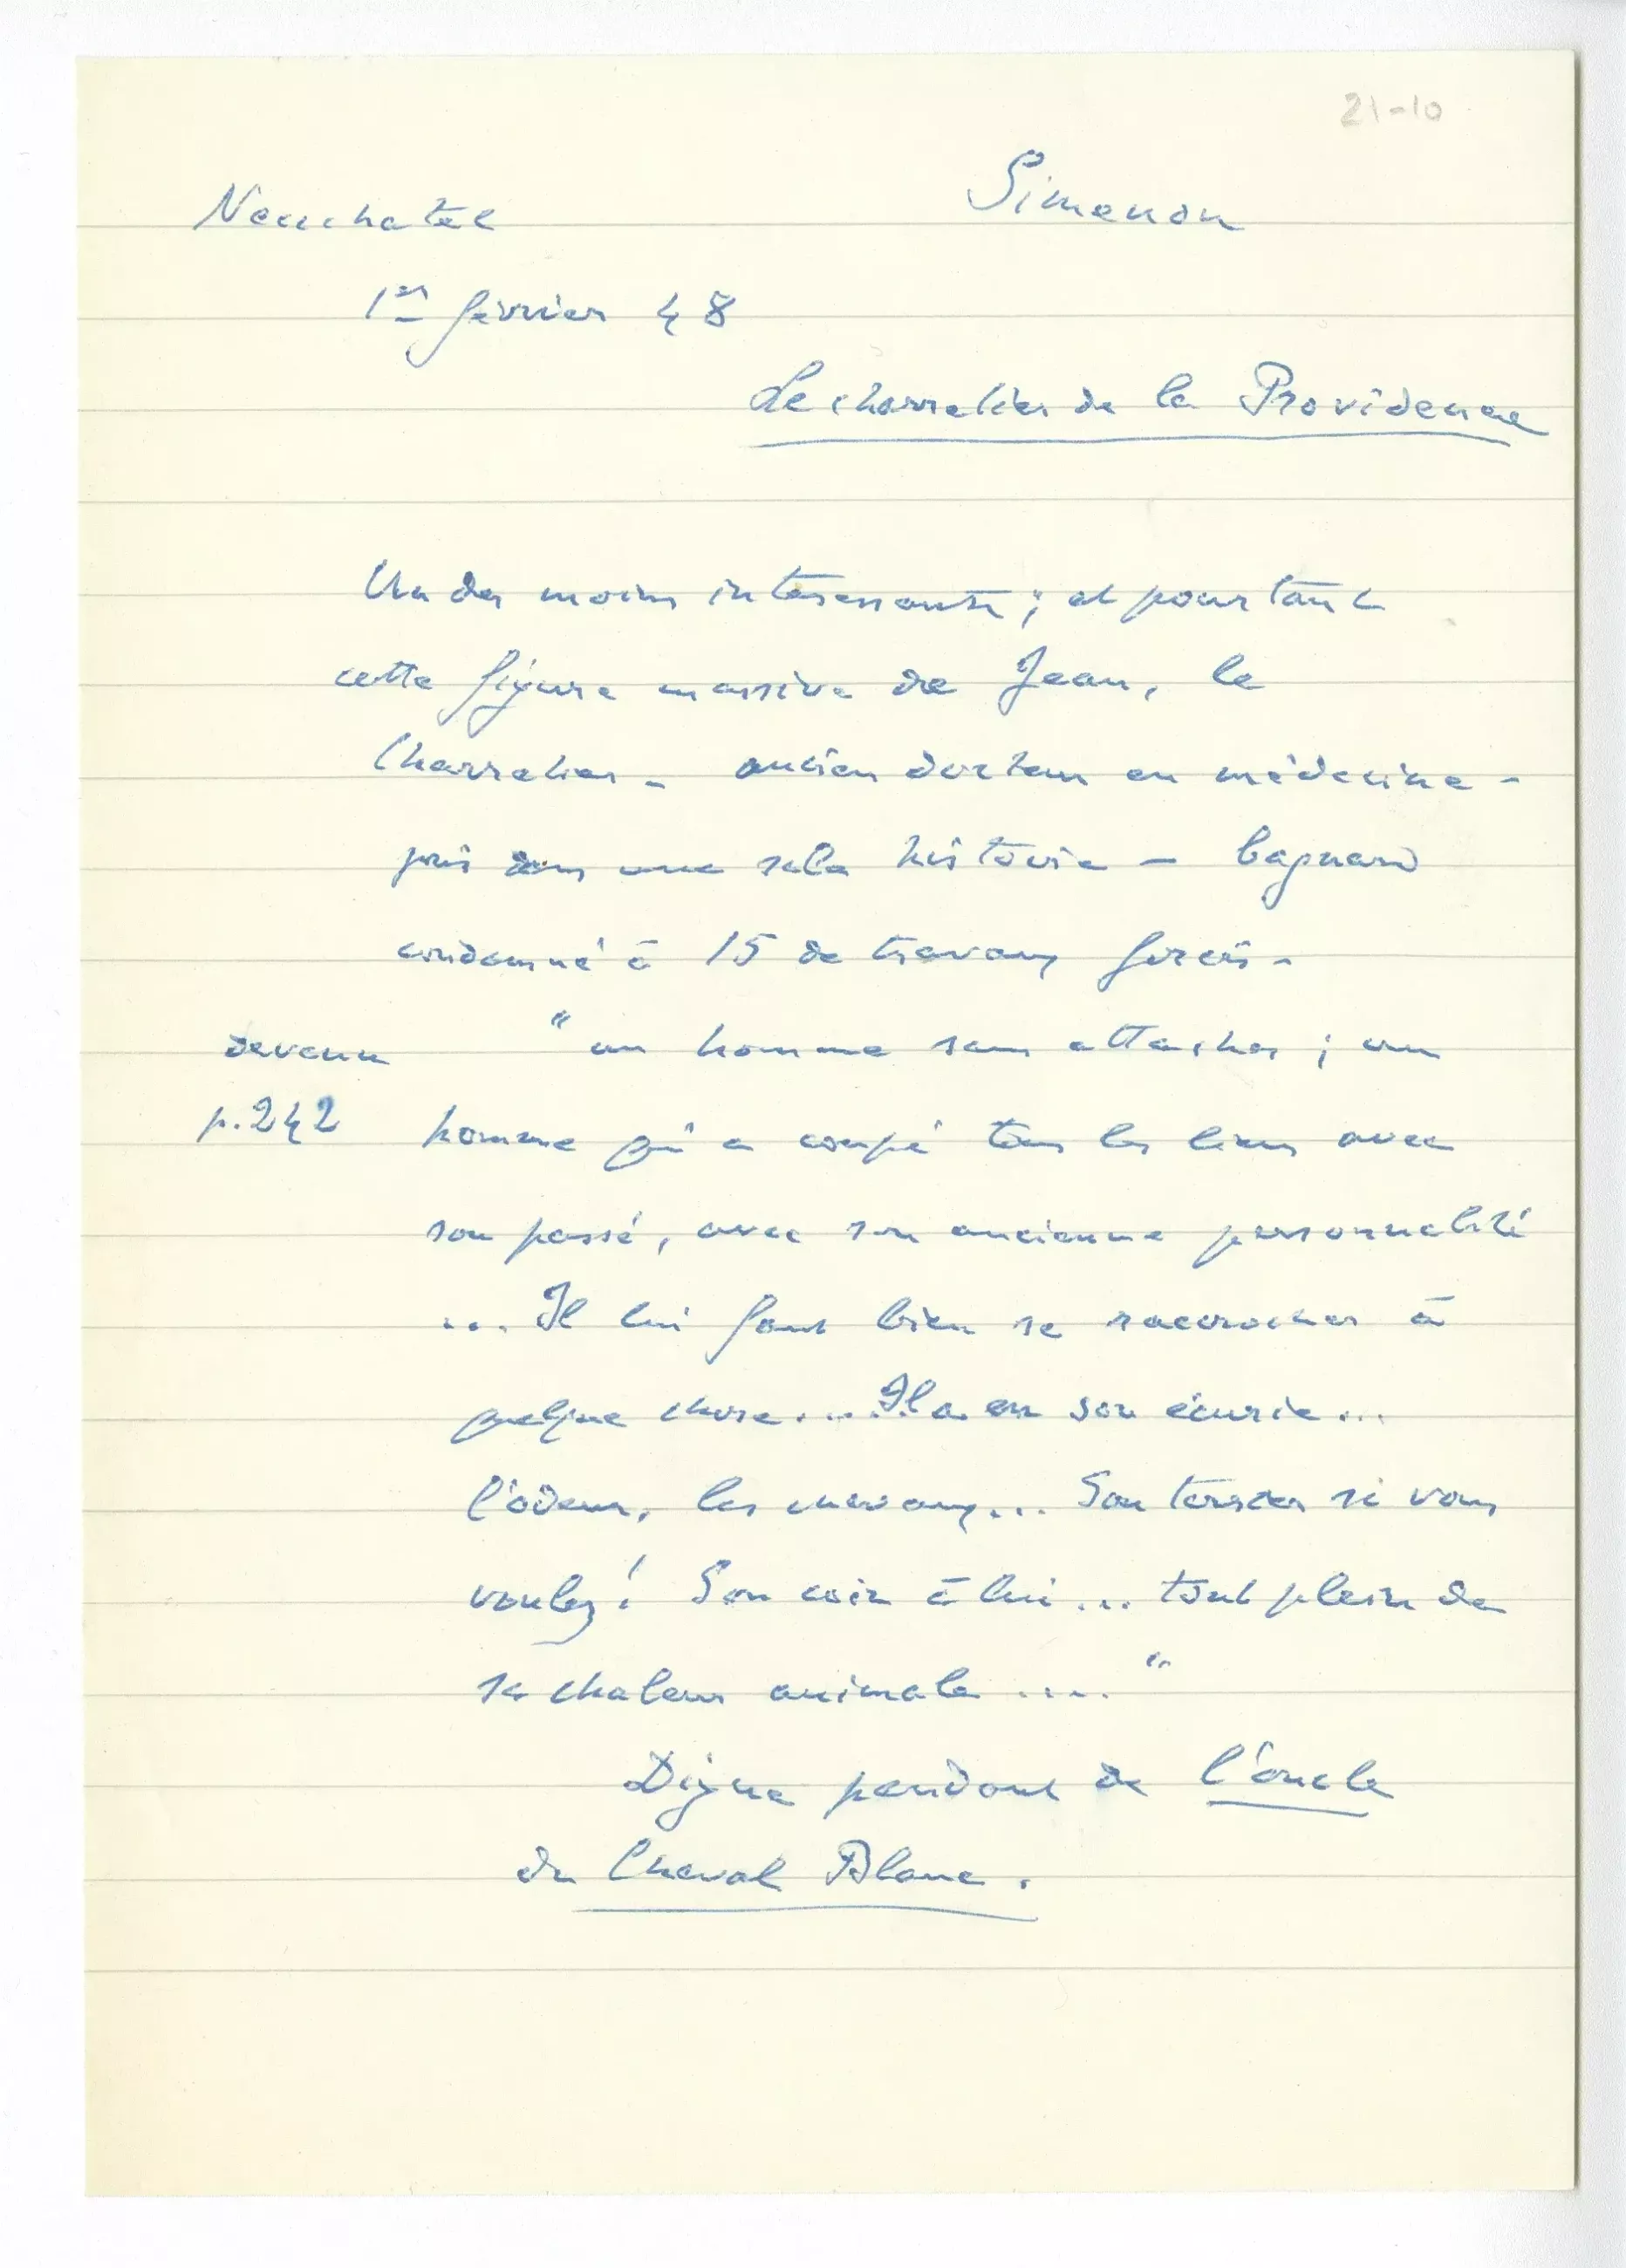 21-10
Neuchatel
Simenon
1er février 48
Le charretier de la Providence
Un des moins intéressants ; et pourtant
cette figure massive de Jean, le
Charretier - ancien docteur en médecine -
pris dans une sale histoire - bagnard
condamné à 15 de travaux forcés -
devenu "un homme sans attaches ; un
p.242 homme qui a coupé tous les liens avec
son passé, avec son ancienne personnalité
... Il lui faut bien se raccrocher à
quelque chose... Il a eu son écurie...
l'odeur, les chevaux... Son terrier si vous
voulez ! Son coin à lui ... tout plein de
sa chaleur animale ...."
Digne pendant de l'oncle
du Cheval Blanc.